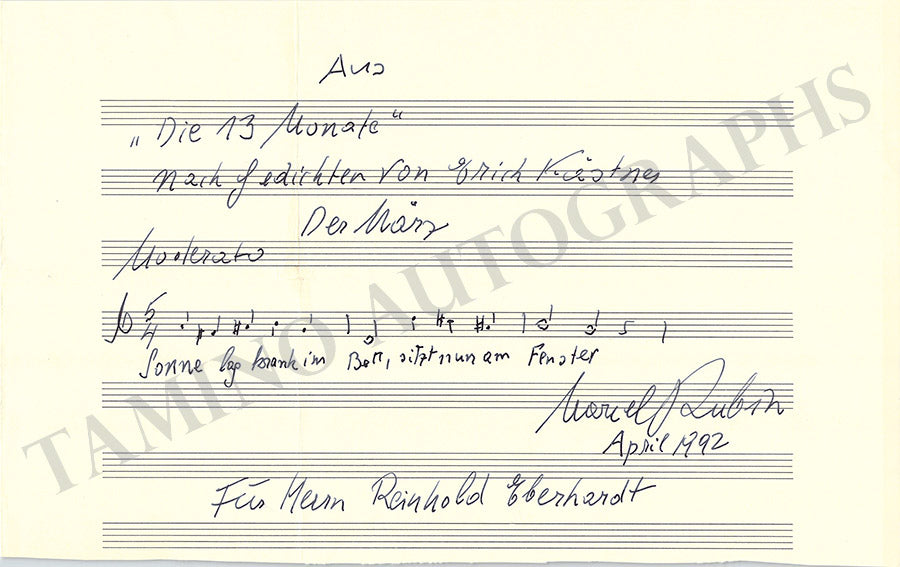 Aus
„Die 13 Monate“
nach Gedichten von Erich Kästner
Der März
Moderato
5
4
Sonne lag krank im Bett, sitzt nun am Fenster
Marcel Rubin
April 1992
Für Herrn Reinhold Eberhardt
TAMINO AUTOGRAPHS